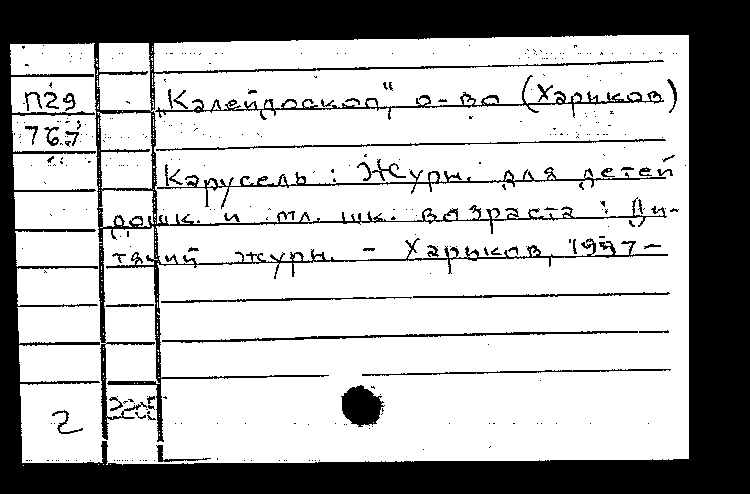 П29
767
„Калейдоскоп", о-во (Харьков)
Карусель : Журн. для детей
дошк. и мл. шк. возраста : Ди-
тячий журн. - Харьков, 1997-
2